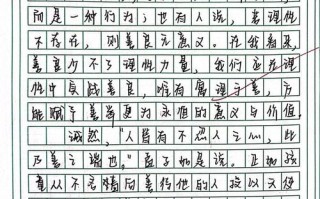 而是一种行为；也有人说，若理性
不存在，则善良无意义。在我看来，
善良少不了理性力量，我们应在理
性中良践善良，唯有寓理于善，方
能赋予善良更为永恒的意义与价值。
诚然，“人皆有不忍人之心，此
乃善之端也。”孟子如是说。正如孩
童从不吝啬向善待他的人投以天使